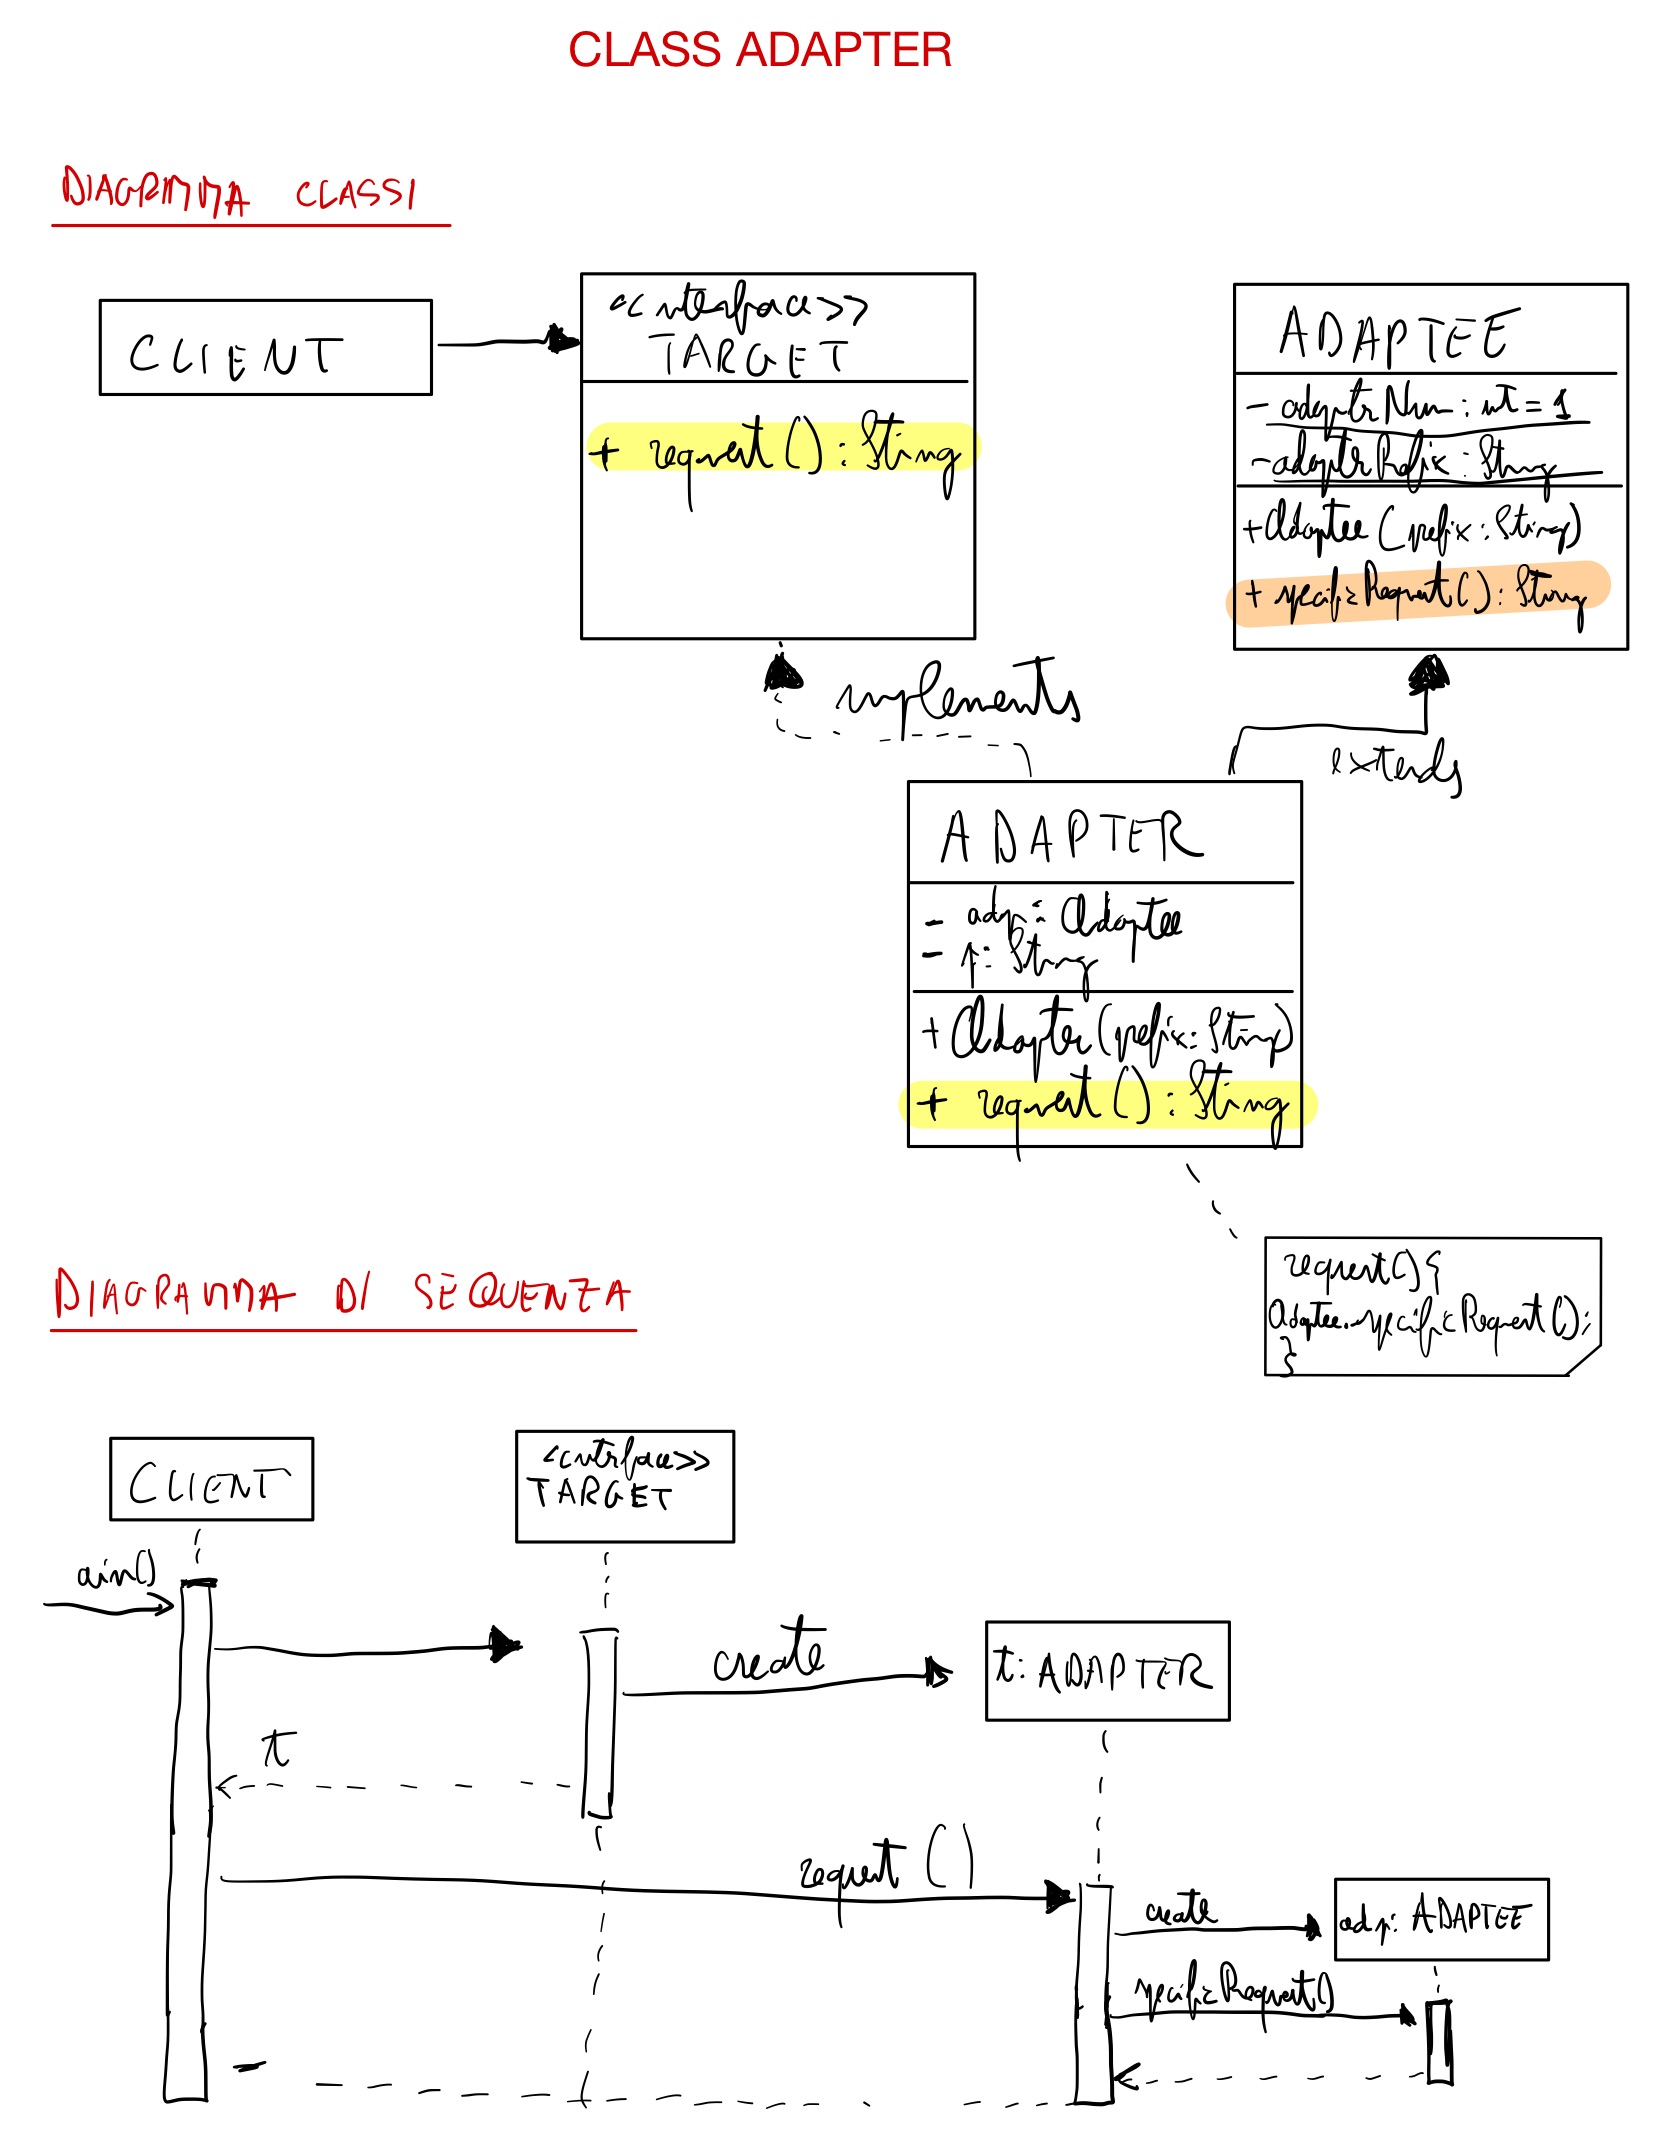 CLASS ADAPTER
DIAGRAMMA CLASSI
CLIENT
<<interface>>
TARGET
+ request() : String
ADAPTEE
- adapterNum : int = 1
- adapterPrefix : String
+ Adaptee (prefix : String)
+ specificRequest() : String
implements
extends
ADAPTER
- adp : Adaptee
- p : String
+ Adapter (prefix : String)
+ request() : String
request() {
Adaptee.specificRequest();
}
DIAGRAMMA DI SEQUENZA
CLIENT
<<interface>>
TARGET
ain()
create
t: ADAPTER
t
request ()
create
adp: ADAPTEE
specificRequest()